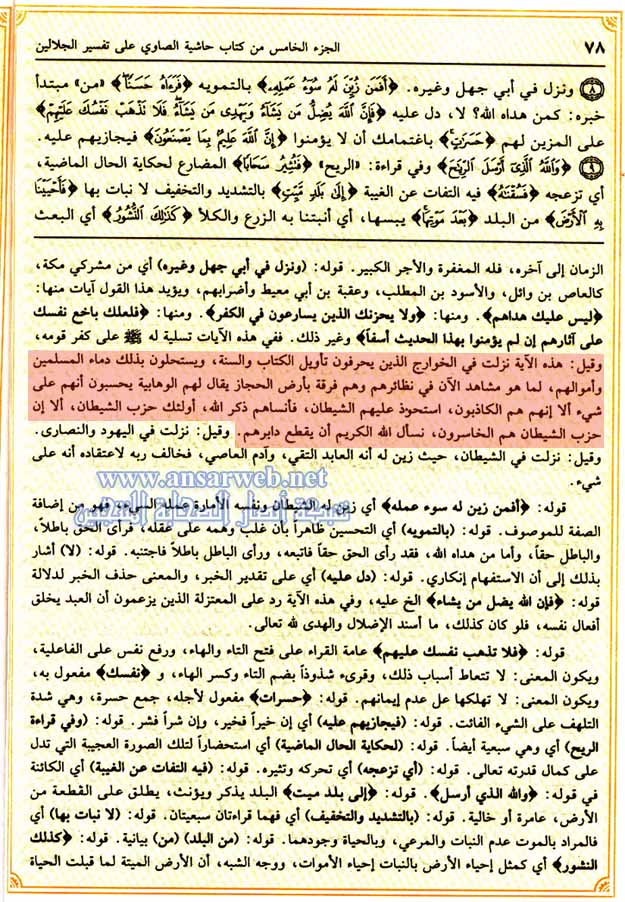 ٧٨ الجزء الخامس من كتاب حاشية الصاوي على تفسير الجلالين
٨ ونزل في أبي جهل وغيره. ﴿أَفَمَن زُيِّنَ لَهُ سُوءُ عَمَلِهِ﴾ بالتمويه ﴿فَرَءَاهُ حَسَنًا﴾ «من» مبتدأ
خبره: كمن هداه الله؟ لا، دل عليه ﴿فَإِنَّ اللَّهَ يُضِلُّ مَن يَشَاءُ وَيَهْدِى مَن يَشَاءُ فَلَا تَذْهَبْ نَفْسُكَ عَلَيْهِمْ﴾
على المزين لهم ﴿حَسَرَاتٍ﴾ باغتمامك أن لا يؤمنوا ﴿إِنَّ اللَّهَ عَلِيمٌ بِمَا يَصْنَعُونَ﴾ فيجازيهم عليه.
٩ ﴿وَاللَّهُ الَّذِى أَرْسَلَ الرِّيَاحَ﴾ وفي قراءة: «الريح» ﴿فَتُثِيرُ سَحَابًا﴾ المضارع لحكاية الحال الماضية،
أي تزعجه ﴿فَسُقْنَاهُ﴾ فيه التفات عن الغيبة ﴿إِلَى بَلَدٍ مَّيِّتٍ﴾ بالتشديد والتخفيف لا نبات بها ﴿فَأَحْيَيْنَا
بِهِ الْأَرْضَ﴾ من البلد ﴿بَعْدَ مَوْتِهَا﴾ يبسها، أي أنبتنا به الزرع والكلأ ﴿كَذَلِكَ النُّشُورُ﴾ أي البعث
الزمان إلى آخره، فله المغفرة والأجر الكبير. قوله: (ونزل في أبي جهل وغيره) أي من مشركي مكة،
كالعاص بن وائل، والأسود بن المطلب، وعقبة بن أبي معيط وأضرابهم، ويؤيد هذا القول آيات منها:
﴿ليس عليك هداهم﴾. ومنها: ﴿ولا يحزنك الذين يسارعون في الكفر﴾. ومنها: ﴿فلعلك باخع نفسك
على آثارهم إن لم يؤمنوا بهذا الحديث أسفاً﴾ وغير ذلك. ففي هذه الآيات تسلية له ﷺ على كفر قومه،
وقيل: هذه الآية نزلت في الخوارج الذين يحرفون تأويل الكتاب والسنة، ويستحلون بذلك دماء المسلمين
وأموالهم، لما هو مشاهد الآن في نظائرهم وهم فرقة بأرض الحجاز يقال لهم الوهابية يحسبون أنهم على
شيء ألا إنهم هم الكاذبون، استحوذ عليهم الشيطان، فأنساهم ذكر الله، أولئك حزب الشيطان، ألا إن
حزب الشيطان هم الخاسرون، نسأل الله الكريم أن يقطع دابرهم. وقيل: نزلت في اليهود والنصارى.
وقيل: نزلت في الشيطان، حيث زين له أنه العابد التقي، وآدم العاصي، فخالف ربه لاعتقاده أنه على
شيء.
www.ansarweb.net
قوله: ﴿أفمن زين له سوء عمله﴾ أي زين له الشيطان ونفسه الأمارة عمله السيىء، فهو من إضافة
الصفة للموصوف. قوله: (بالتمويه) أي التحسين ظاهراً بأن غلب وهمه على عقله، فرأى الحق باطلاً،
والباطل حقاً، وأما من هداه الله، فقد رأى الحق حقاً فاتبعه، ورأى الباطل باطلاً فاجتنبه. قوله: (لا) أشار
بذلك إلى أن الاستفهام إنكاري. قوله: (دل عليه) أي على تقدير الخبر، والمعنى حذف الخبر لدلالة
قوله: ﴿فإن الله يضل من يشاء﴾ الخ عليه، وفي هذه الآية رد على المعتزلة الذين يزعمون أن العبد يخلق
أفعال نفسه، فلو كان كذلك، ما أسند الإضلال والهدى لله تعالى.
قوله: ﴿فلا تذهب نفسك عليهم﴾ عامة القراء على فتح التاء والهاء، ورفع نفس على الفاعلية،
ويكون المعنى: لا تتعاط أسباب ذلك، وقرىء شذوذاً بضم التاء وكسر الهاء، و ﴿نفسك﴾ مفعول به،
ويكون المعنى: لا تهلكها عل عدم إيمانهم. قوله: ﴿حسرات﴾ مفعول لأجله، جمع حسرة، وهي شدة
التلهف على الشيء الفائت. قوله: (فيجازيهم عليه) أي إن خيراً فخير، وإن شراً فشر. قوله: (وفي قراءة
الريح) أي وهي سبعية أيضاً. قوله: (لحكاية الحال الماضية) أي استحضاراً لتلك الصورة العجيبة التي تدل
على كمال قدرته تعالى. قوله: (أي تزعجه) أي تحركه وتثيره. قوله: (فيه التفات عن الغيبة) أي الكائنة
في قوله: ﴿والله الذي أرسل﴾. قوله: ﴿إلى بلد ميت﴾ البلد يذكر ويؤنث، يطلق على القطعة من
الأرض، عامرة أو خالية. قوله: (بالتشديد والتخفيف) أي فهما قراءتان سبعيتان. قوله: (لا نبات بها) أي
فالمراد بالموت عدم النبات والمرعى، وبالحياة وجودهما. قوله: (من البلد) (من) بيانية. قوله: ﴿كذلك
النشور﴾ أي كمثل إحياء الأرض بالنبات إحياء الأموات، ووجه الشبه، أن الأرض الميتة لما قبلت الحياة